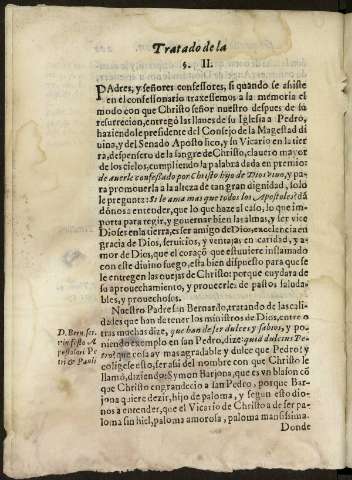 Tratado de la
§. II.
PAdres, y señores confessores, si quando se assiste
en el confessionario traxessemos a la memoria el
modo con que Christo señor nuestro despues de su
resurreccion, entregò las llaues de su Iglesia a Pedro,
haziendole presidente del Consejo de la Magestad di
uina, y del Senado Apostolico, y su Vicario en la tier
ra, despensero de la sangre de Christo, clauero mayor
de los cielos, cumpliendo la palabra dada en premio
de auerle confessado por Christo hijo de Dios viuo, y pa
ra promouerla a la alteza de tan gran dignidad, solo
le pregunta: Si le ama mas que todos los Apostoles? dã
donos a entender, que lo que haze al caso, lo que im
porta para regir, y gouernar bien las almas, y ser vice
Dioses en la tierra, es ser amigo de Dios, excelencia en
gracia de Dios, seruicios, y ventajas en caridad, y a-
mor de Dios, que el coraçõ que estuuiere inflamado
con este diuino fuego, esta bien dispuesto para que se
le entreguen las ouejas de Christo: porque cuydara de
su aprouechamiento, y proueerles de pastos saluda-
bles, y prouechosos.
Nuestro Padre san Bernardo, tratando de las cali-
dades que han de tener los ministros de Dios, entre o
tras muchas dize, que han de ser dulces y sabios, y po-
niendo exemplo en san Pedro, dize: quid dulcius Pe-
tro? que cosa ay mas agradable y dulce que Pedro? y
coligese esto, ser assi del nombre con que Christo le
llamò, diziendo: Symon Barjona, que es vn blason cõ
que Christo engrandecio a san Pedro, porque Bar-
jona quiere dezir, hijo de paloma, y segun esto dio-
nos a entender, que el Vicario de Christo a de ser pa-
loma sin hiel, paloma amorosa, paloma mansissima.
Donde
D. Bern. ser.
in festo A
postolorũ Pe
tri & Pauli